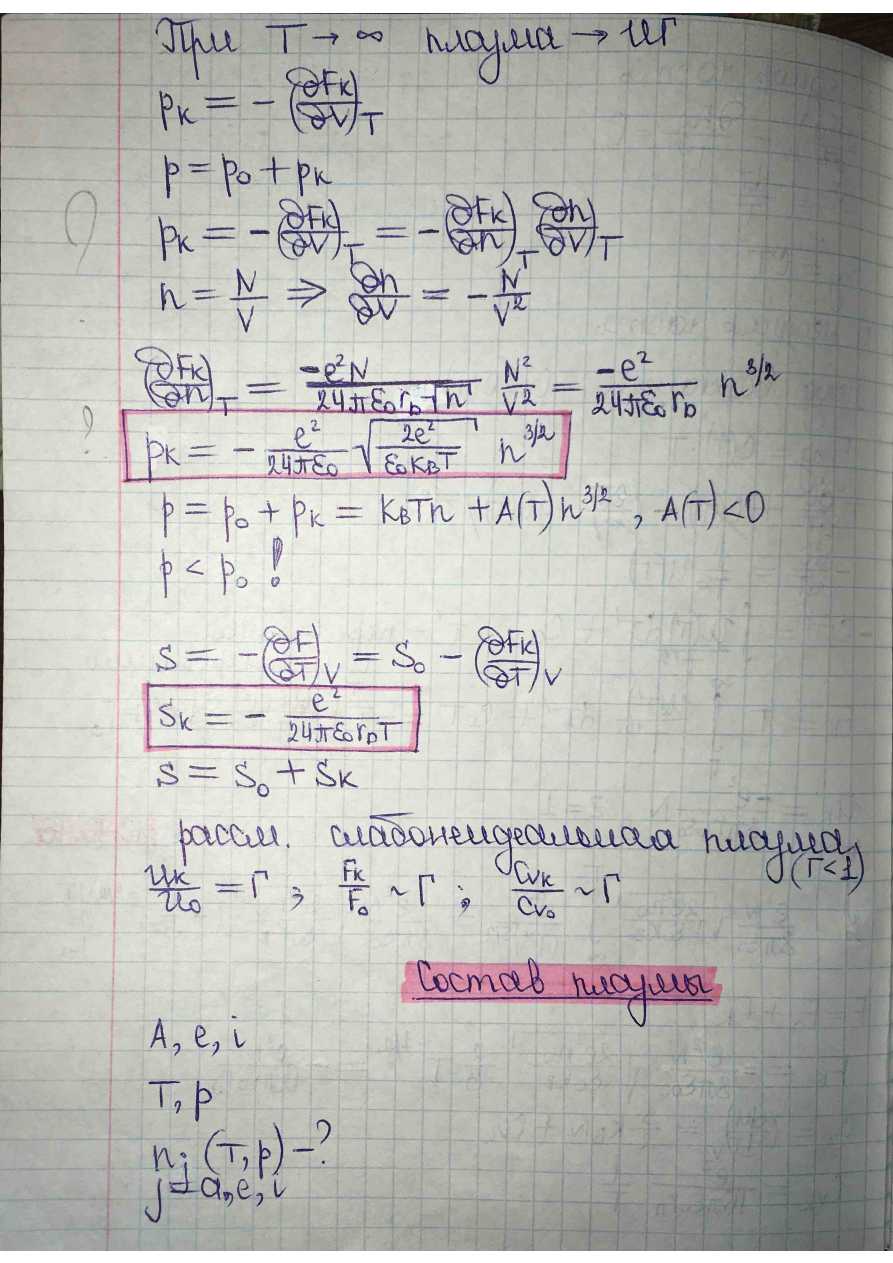 При T → ∞ плазма → ИГ
pк = -(∂Fк/∂V)T
p = p₀ + pк
pк = -(∂Fк/∂V)T = -(∂Fк/∂n)T (∂n/∂V)T
n = N/V ⇒ ∂n/∂V = -N/V²
(∂Fк/∂n)T = -e²N/(24πε₀rD√n) N²/V² = -e²/(24πε₀rD) n^3/2
pк = - e²/(24πε₀) √(2e²/(ε₀kвT)) n^3/2
p = p₀ + pк = kвTn + A(T)n^3/2, A(T)<0
p < p₀ !
S = -(∂F/∂T)V = S₀ - (∂Fк/∂T)V
Sк = - e²/(24πε₀rDT)
S = S₀ + Sк
рассм. слабонеидеальная плазма
(Γ<1)
Uк/U₀ = Γ ; Fк/F₀ ~ Γ ; Cvк/Cv₀ ~ Γ
Состав плазмы
A, e, i
T, p
nj (T, p) -?
j = a, e, i